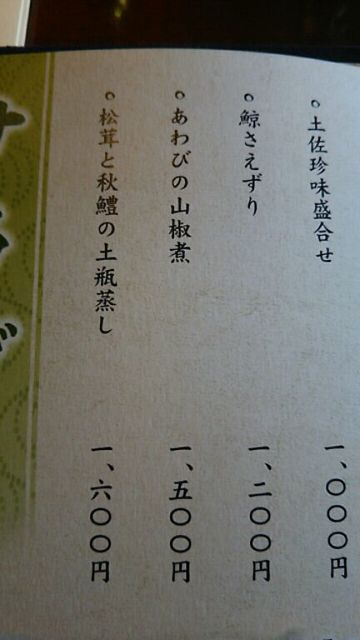 土佐珍味盛合せ 一、〇〇〇円
鯨さえずり 一、二〇〇円
あわびの山椒煮 一、五〇〇円
松茸と秋鱧の土瓶蒸し 一、六〇〇円